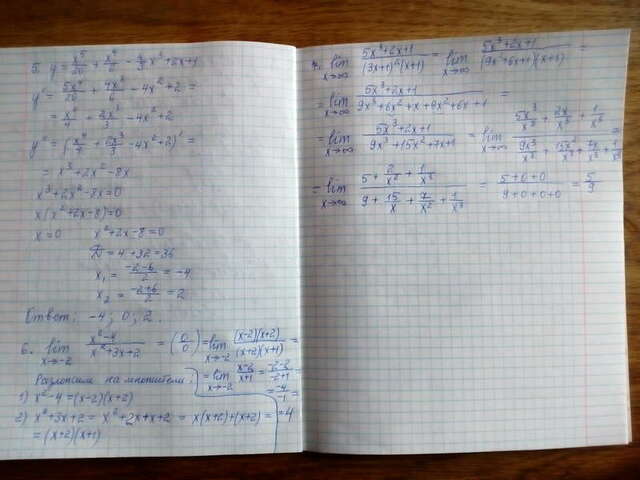 5. y = x⁵/20 + x⁴/6 - 4/3 x³ + 2x + 1
y' = 5x⁴/20 + 4x³/6 - 4x² + 2 =
= x⁴/4 + 2x³/3 - 4x² + 2
y'' = (x⁴/4 + 2x³/3 - 4x² + 2)' =
= x³ + 2x² - 8x
x³ + 2x² - 8x = 0
x(x² + 2x - 8) = 0
x = 0 x² + 2x - 8 = 0
D = 4 + 32 = 36
x₁ = (-2-6)/2 = -4
x₂ = (-2+6)/2 = 2
Ответ: -4; 0; 2.
6. lim x→-2 (x²-4)/(x²+3x+2) = (0/0) = lim x→-2 (x-2)(x+2)/(x+2)(x+1) =
Разложим на множители: = lim x→-2 (x-2)/(x+1) = (-2-2)/(-2+1) =
1) x² - 4 = (x-2)(x+2) = -4/-1 =
2) x² + 3x + 2 = x² + 2x + x + 2 = x(x+2) + (x+2) = = 4
= (x+2)(x+1)
7. lim x→∞ (5x³+2x+1)/((3x+1)²(x+1)) = lim x→∞ (5x³+2x+1)/((9x²+6x+1)(x+1)) =
= lim x→∞ (5x³+2x+1)/(9x³+6x²+x+9x²+6x+1) =
= lim x→∞ (5x³+2x+1)/(9x³+15x²+7x+1) = lim x→∞ (5x³/x³ + 2x/x³ + 1/x³)/(9x³/x³ + 15x²/x³ + 7x/x³ + 1/x³) =
= lim x→∞ (5 + 2/x² + 1/x³)/(9 + 15/x + 7/x² + 1/x³) = (5+0+0)/(9+0+0+0) = 5/9